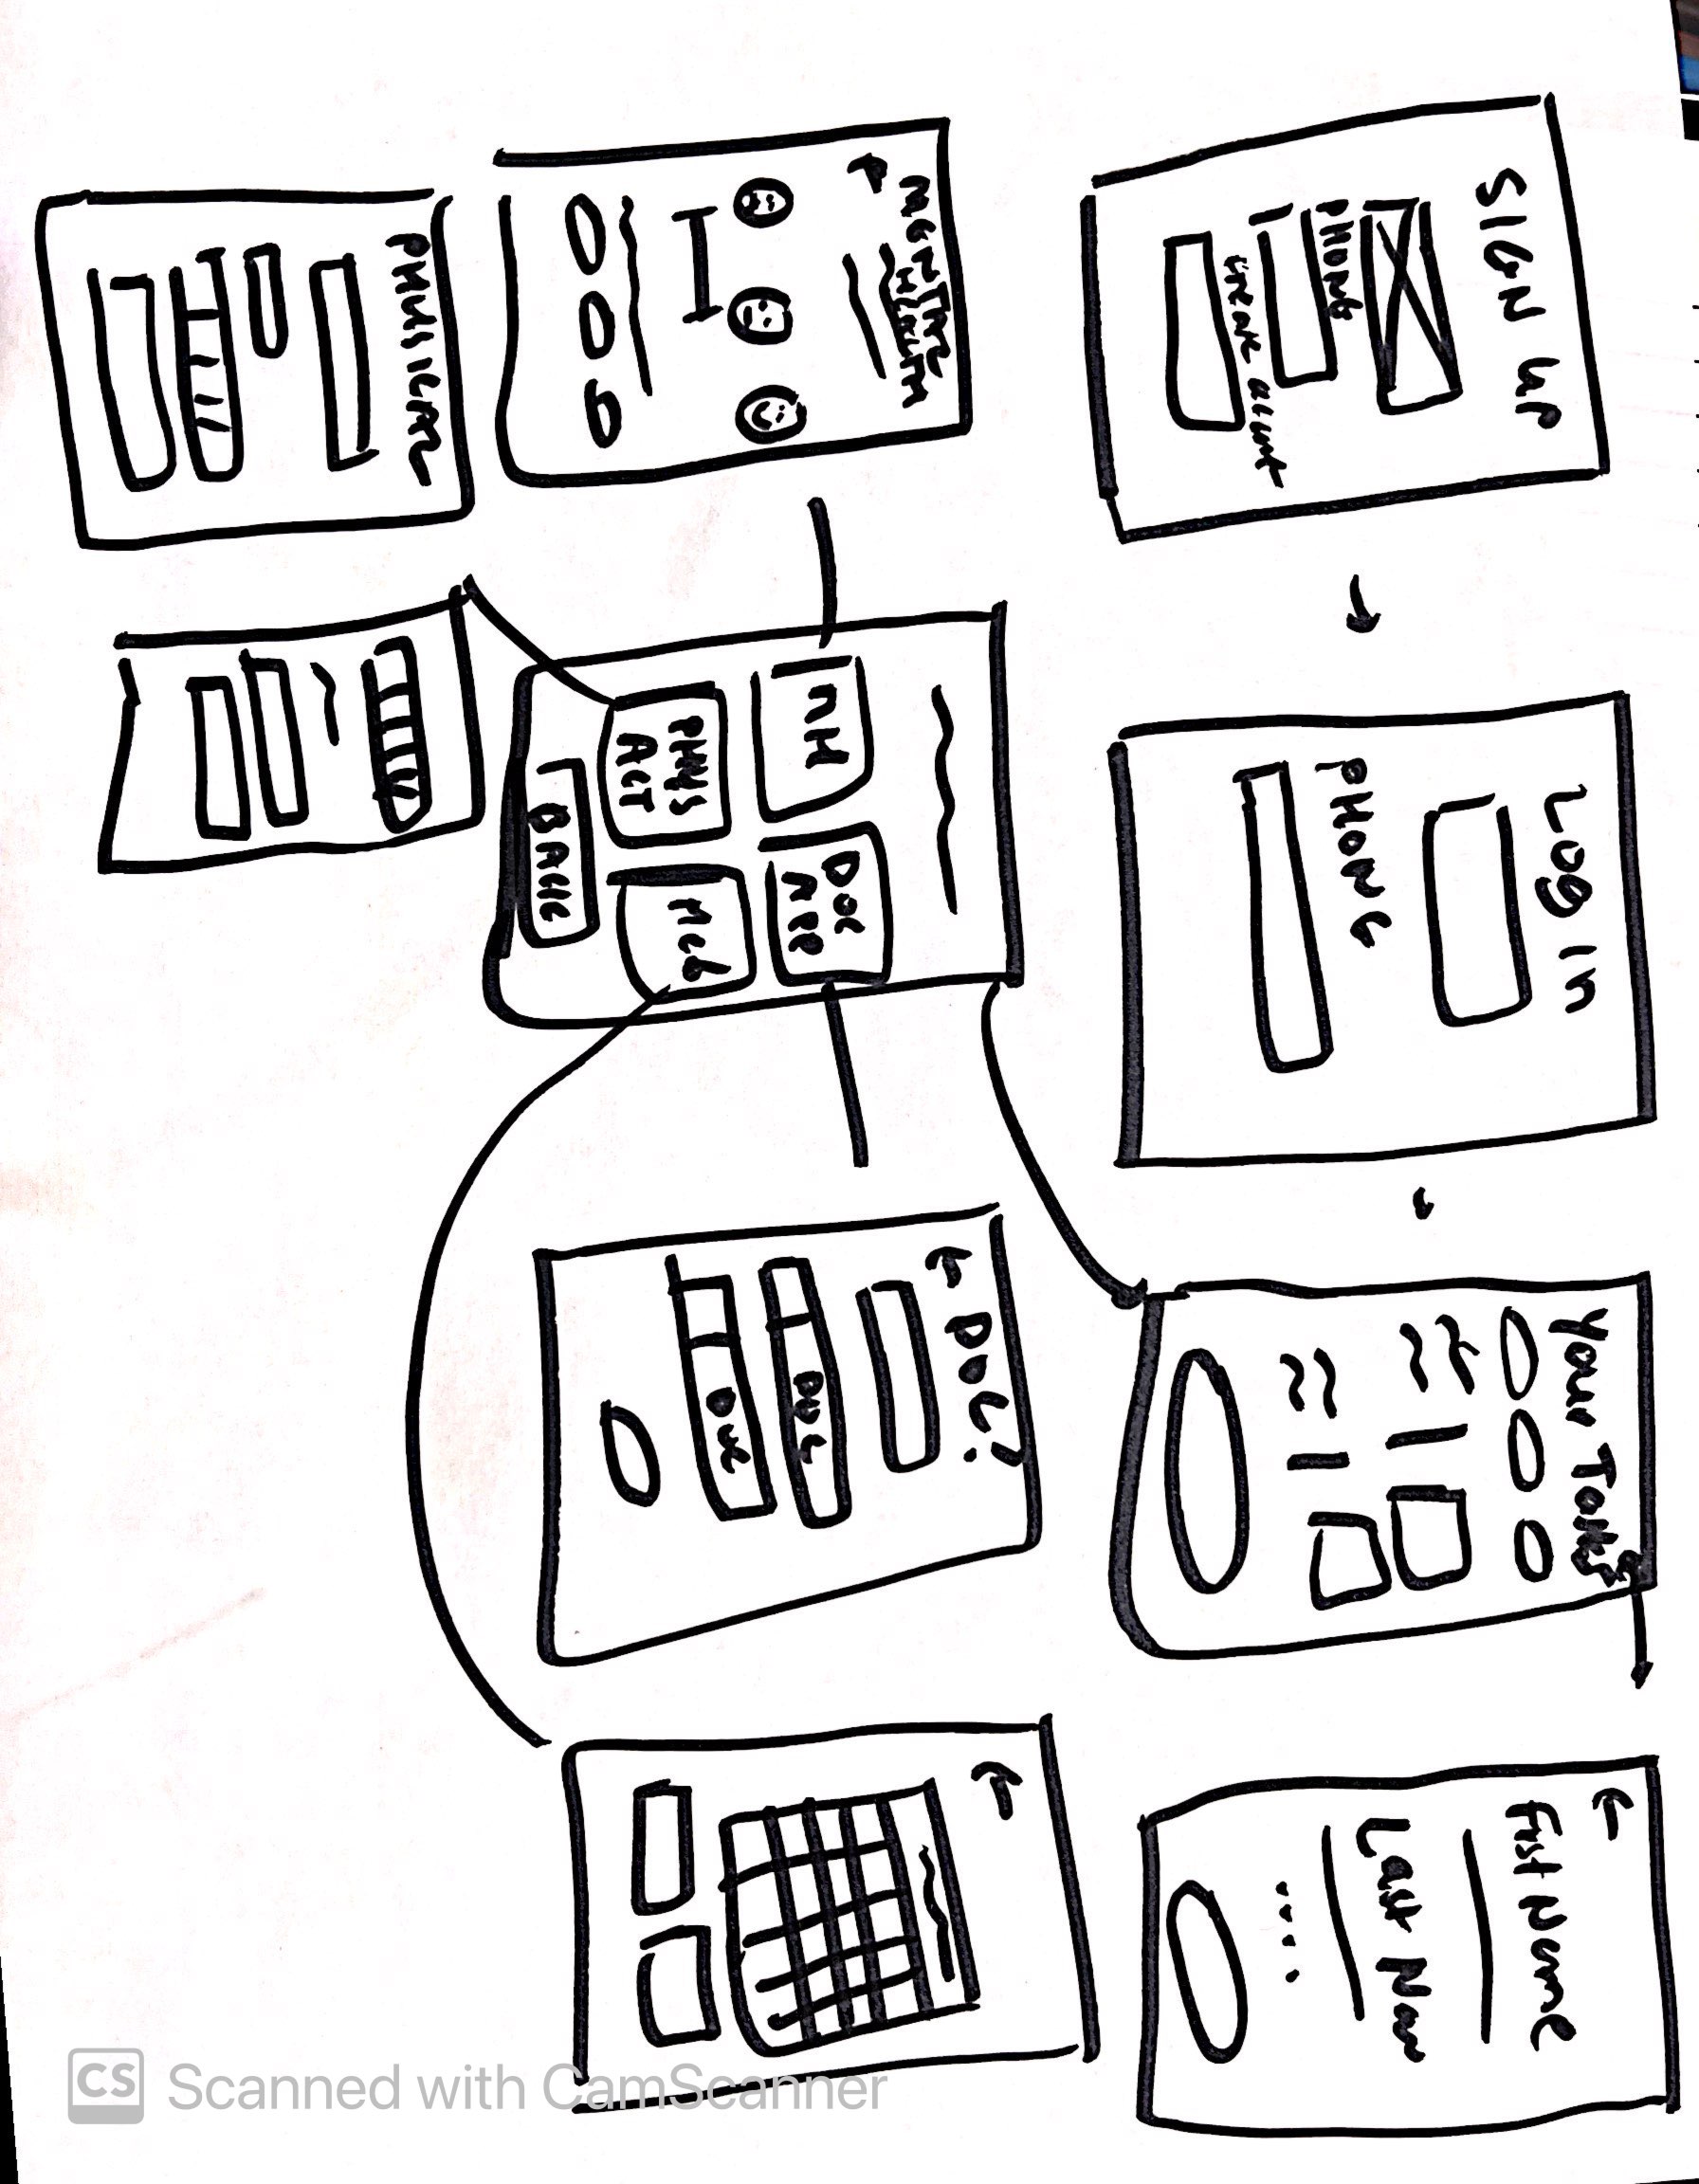 SIGN UP
PHONE
create account
LOG IN
PHONE
Your Tasks
←
Fist Name
Last Nam
....
MENTAL
HEALTH
MH
DOC
APP
PHYS
ACT
Med
BACK
← DOC?
DOC
DOC
←
PHYSICAL
CS Scanned with CamScanner